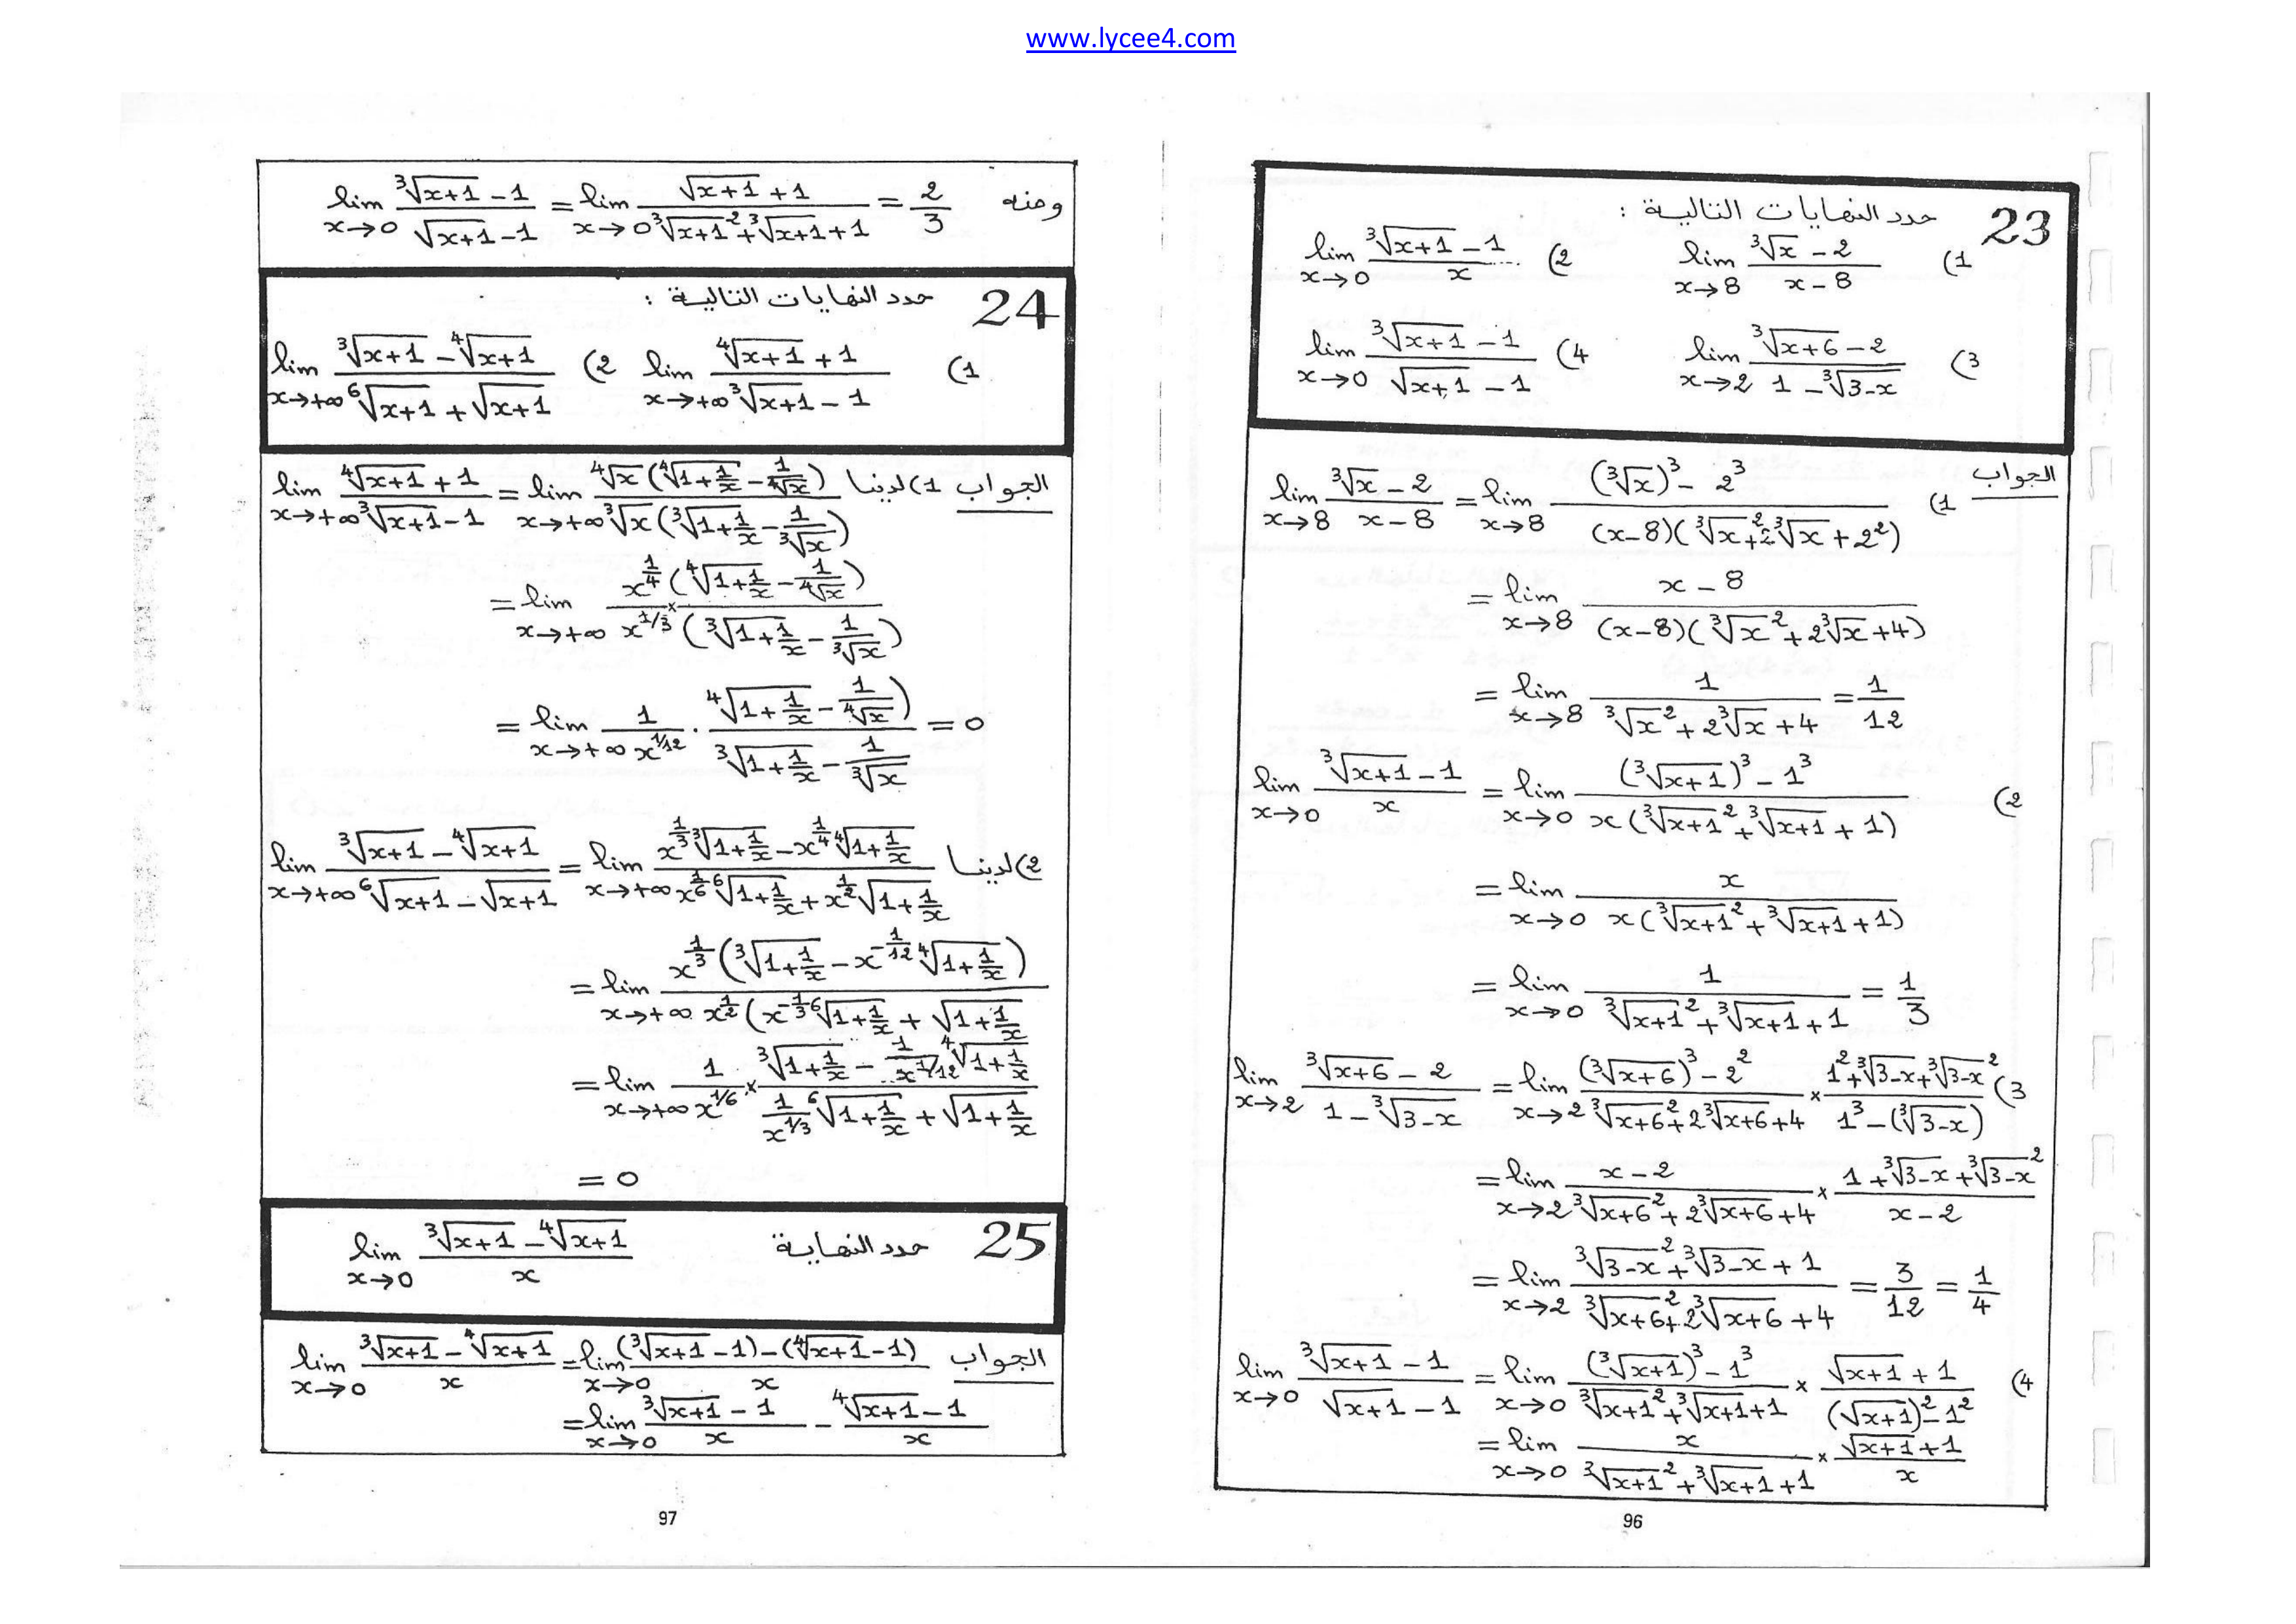 www.lycee4.com
23 حدد النهايات التالية :
1) lim_{x→8} (∛x - 2)/(x - 8)   2) lim_{x→0} (∛(x+1) - 1)/x
3) lim_{x→2} (∛(x+6) - 2)/(1 - ∛(3-x))   4) lim_{x→0} (∛(x+1) - 1)/(√(x+1) - 1)
الجواب
1) lim_{x→8} (∛x - 2)/(x - 8) = lim_{x→8} ((∛x)³ - 2³)/((x-8)(∛x² + 2∛x + 2²))
= lim_{x→8} (x - 8)/((x-8)(∛x² + 2∛x + 4))
= lim_{x→8} 1/(∛x² + 2∛x + 4) = 1/12
2) lim_{x→0} (∛(x+1) - 1)/x = lim_{x→0} ((∛(x+1))³ - 1³)/(x(∛(x+1)² + ∛(x+1) + 1))
= lim_{x→0} x/(x(∛(x+1)² + ∛(x+1) + 1))
= lim_{x→0} 1/(∛(x+1)² + ∛(x+1) + 1) = 1/3
3) lim_{x→2} (∛(x+6) - 2)/(1 - ∛(3-x)) = lim_{x→2} ((∛(x+6))³ - 2²)/(∛(x+6)² + 2∛(x+6) + 4) × (1² + ∛(3-x) + ∛(3-x)²)/(1³ - (∛(3-x))
= lim_{x→2} (x - 2)/(∛(x+6)² + 2∛(x+6) + 4) × (1 + ∛(3-x) + ∛(3-x)²)/(x - 2)
= lim_{x→2} (∛(3-x)² + ∛(3-x) + 1)/(∛(x+6)² + 2∛(x+6) + 4) = 3/12 = 1/4
4) lim_{x→0} (∛(x+1) - 1)/(√(x+1) - 1) = lim_{x→0} ((∛(x+1))³ - 1³)/(∛(x+1)² + ∛(x+1) + 1) × (√(x+1) + 1)/((√(x+1))² - 1²)
= lim_{x→0} x/(∛(x+1)² + ∛(x+1) + 1) × (√(x+1) + 1)/x
96
ومنه lim_{x→0} (∛(x+1) - 1)/(√(x+1) - 1) = lim_{x→0} (√(x+1) + 1)/(∛(x+1)² + ∛(x+1) + 1) = 2/3
24 حدد النهايات التالية :
1) lim_{x→+∞} (∜(x+1) + 1)/(∛(x+1) - 1)   2) lim_{x→+∞} (∛(x+1) - ∜(x+1))/(⁶√(x+1) + √(x+1))
الجواب 1) لدينا lim_{x→+∞} (∜(x+1) + 1)/(∛(x+1) - 1) = lim_{x→+∞} ∜x(∜(1+1/x) - 1/∜x)/(∛x(∛(1+1/x) - 1/∛x))
= lim_{x→+∞} x^{1/4}/x^{1/3} × (∜(1+1/x) - 1/∜x)/(∛(1+1/x) - 1/∛x)
= lim_{x→+∞} 1/x^{1/12} · (∜(1+1/x) - 1/∜x)/(∛(1+1/x) - 1/∛x) = 0
2) لدينا lim_{x→+∞} (∛(x+1) - ∜(x+1))/(⁶√(x+1) - √(x+1)) = lim_{x→+∞} (x^{1/3} ∛(1+1/x) - x^{1/4} ∜(1+1/x))/(x^{1/6} ⁶√(1+1/x) + x^{1/2} √(1+1/x))
= lim_{x→+∞} x^{1/3}(∛(1+1/x) - x^{-1/12} ∜(1+1/x))/(x^{1/2}(x^{-1/3} ⁶√(1+1/x) + √(1+1/x))
= lim_{x→+∞} 1/x^{1/6} × (∛(1+1/x) - 1/x^{1/12} ∜(1+1/x))/(1/x^{1/3} ⁶√(1+1/x) + √(1+1/x))
= 0
25 حدد النهاية lim_{x→0} (∛(x+1) - ∜(x+1))/x
الجواب lim_{x→0} (∛(x+1) - ∜(x+1))/x = lim_{x→0} ((∛(x+1) - 1) - (∜(x+1) - 1))/x
= lim_{x→0} (∛(x+1) - 1)/x - (∜(x+1) - 1)/x
97